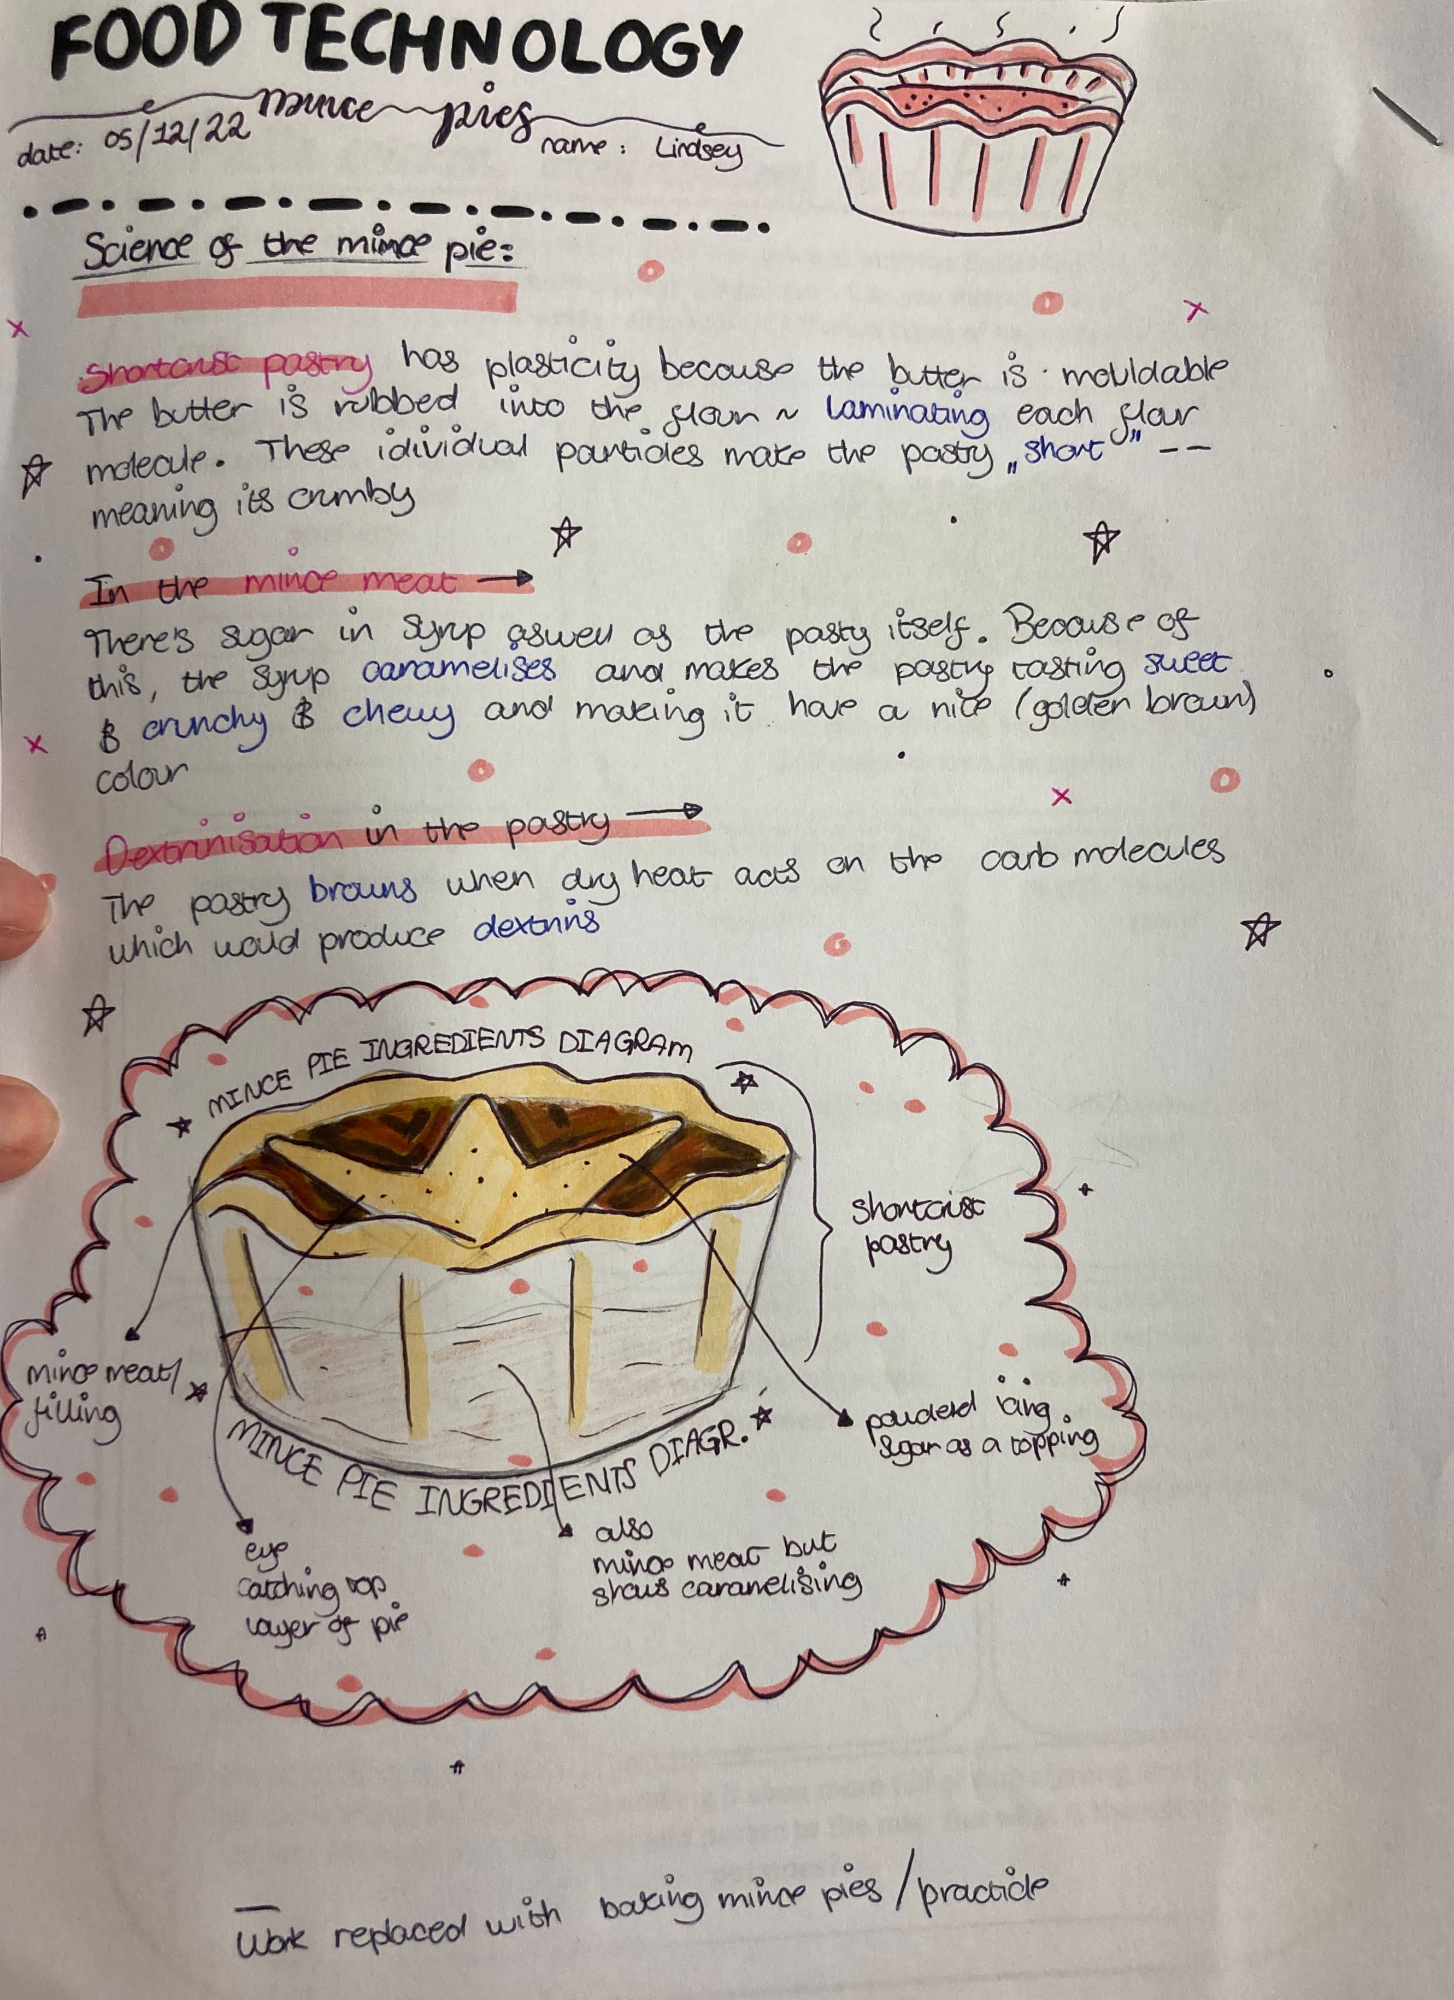 FOOD TECHNOLOGY
mince pies
date: 05/12/22
name: Lindsey
Science of the mince pie:
Shortcrust pastry has plasticity because the butter is mouldable
The butter is rubbed into the flour ~ laminating each flour
molecule. These idividual particles make the pastry „short" --
meaning its crumby
In the mince meat →
There's sugar in syrup aswell as the pasty itself. Because of
this, the syrup caramelises and makes the pastry tasting sweet
& crunchy & chewy and making it have a nice (golden brown)
colour
Dextrinisation in the pastry →
The pastry browns when dry heat acts on the carb molecules
which would produce dextrins
MINCE PIE INGREDIENTS DIAGRAM
shortcrust
pastry
mince meat/
filling
powdered icing
sugar as a topping
MINCE PIE INGREDIENTS DIAGR.
eye
catching top
layer of pie
also
mince meat but
shows caramelising
Work replaced with baking mince pies/practicle